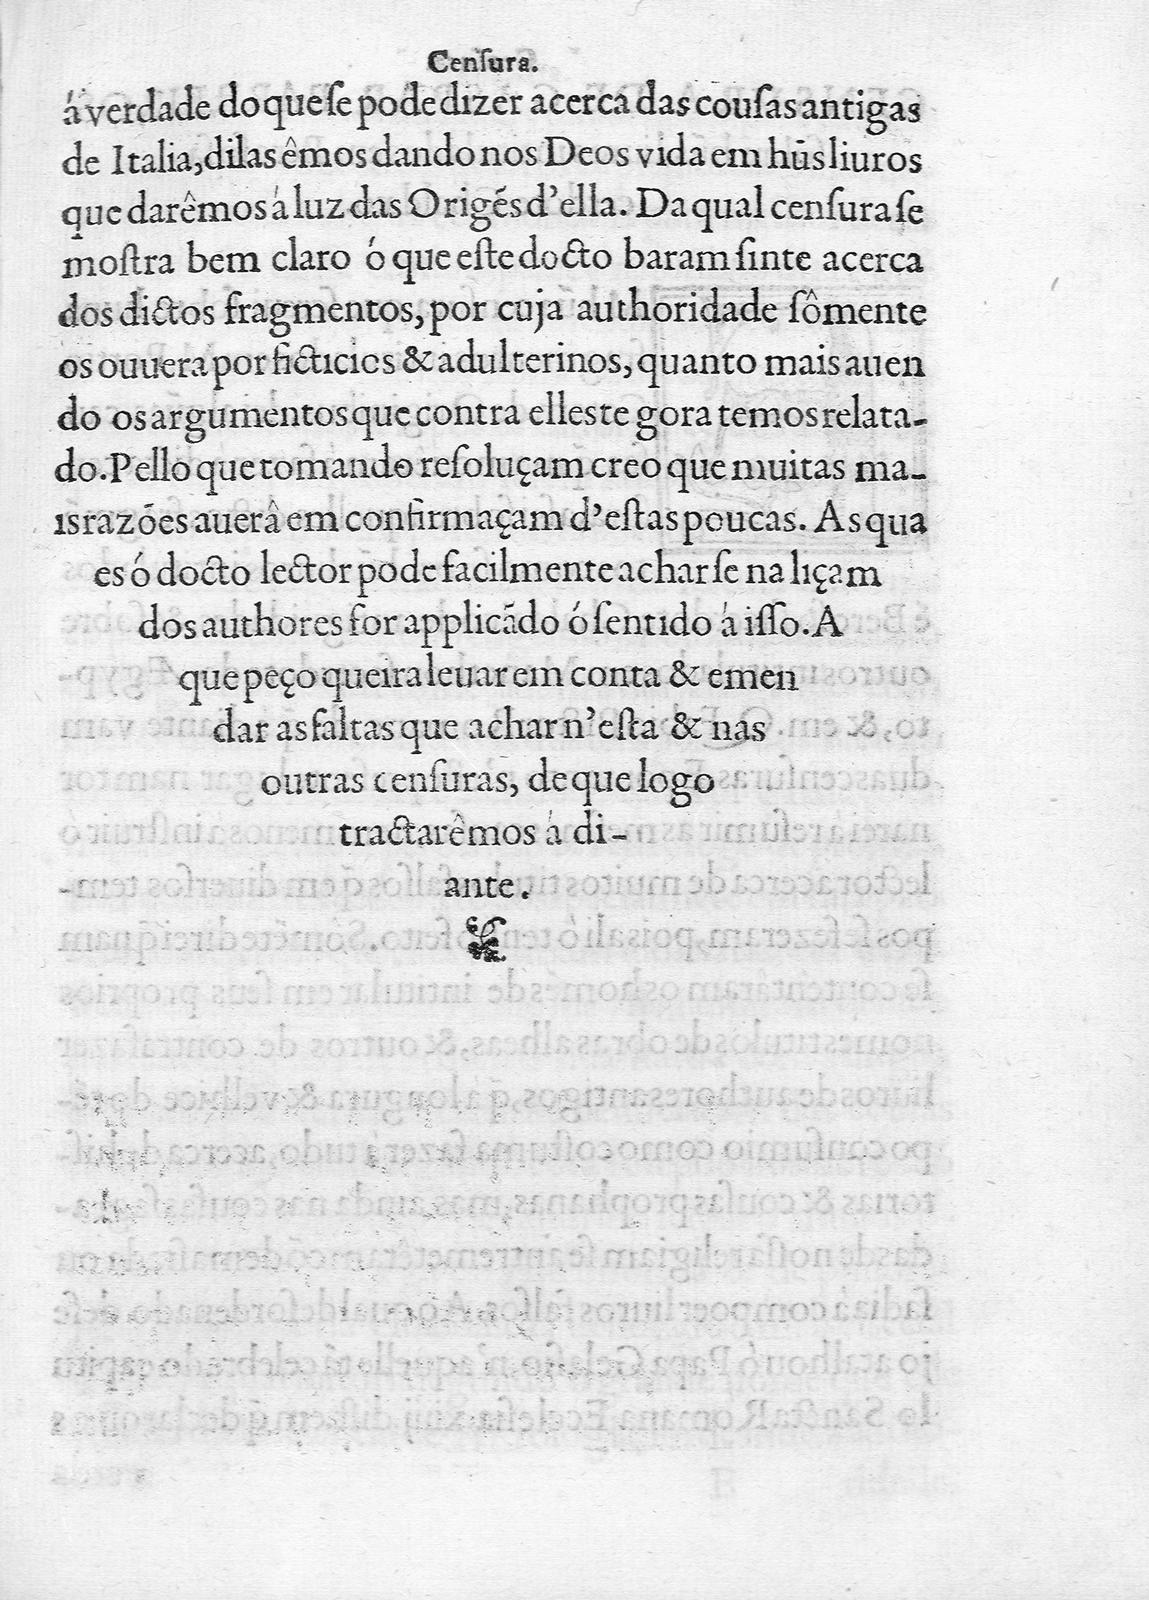 Cenſura.
á verdade do que ſe pode dizer acerca das couſas antigas
de Italia, dilas êmos dando nos Deos vida em hũs liuros
que darêmos á luz das Origẽs d'ella. Da qual cenſura ſe
moſtra bem claro ó que eſte docto baram ſinte acerca
dos dictos fragmentos, por cuja authoridade ſômente
os ouuera por ficticios & adulterinos, quanto mais auen
do os argumentos que contra elles te gora temos relata-
do. Pello que tomando reſoluçam creo que muitas ma-
is razões auerâ em confirmaçam d'eſtas poucas. As qua
es ó docto lector pode facilmente achar ſe na liçam
dos authores ſor applicãdo ó ſentido á iſſo. A
que peço queira leuar em conta & emen
dar as faltas que achar n'eſta & nas
outras cenſuras, de que logo
tractarêmos á di-
ante.